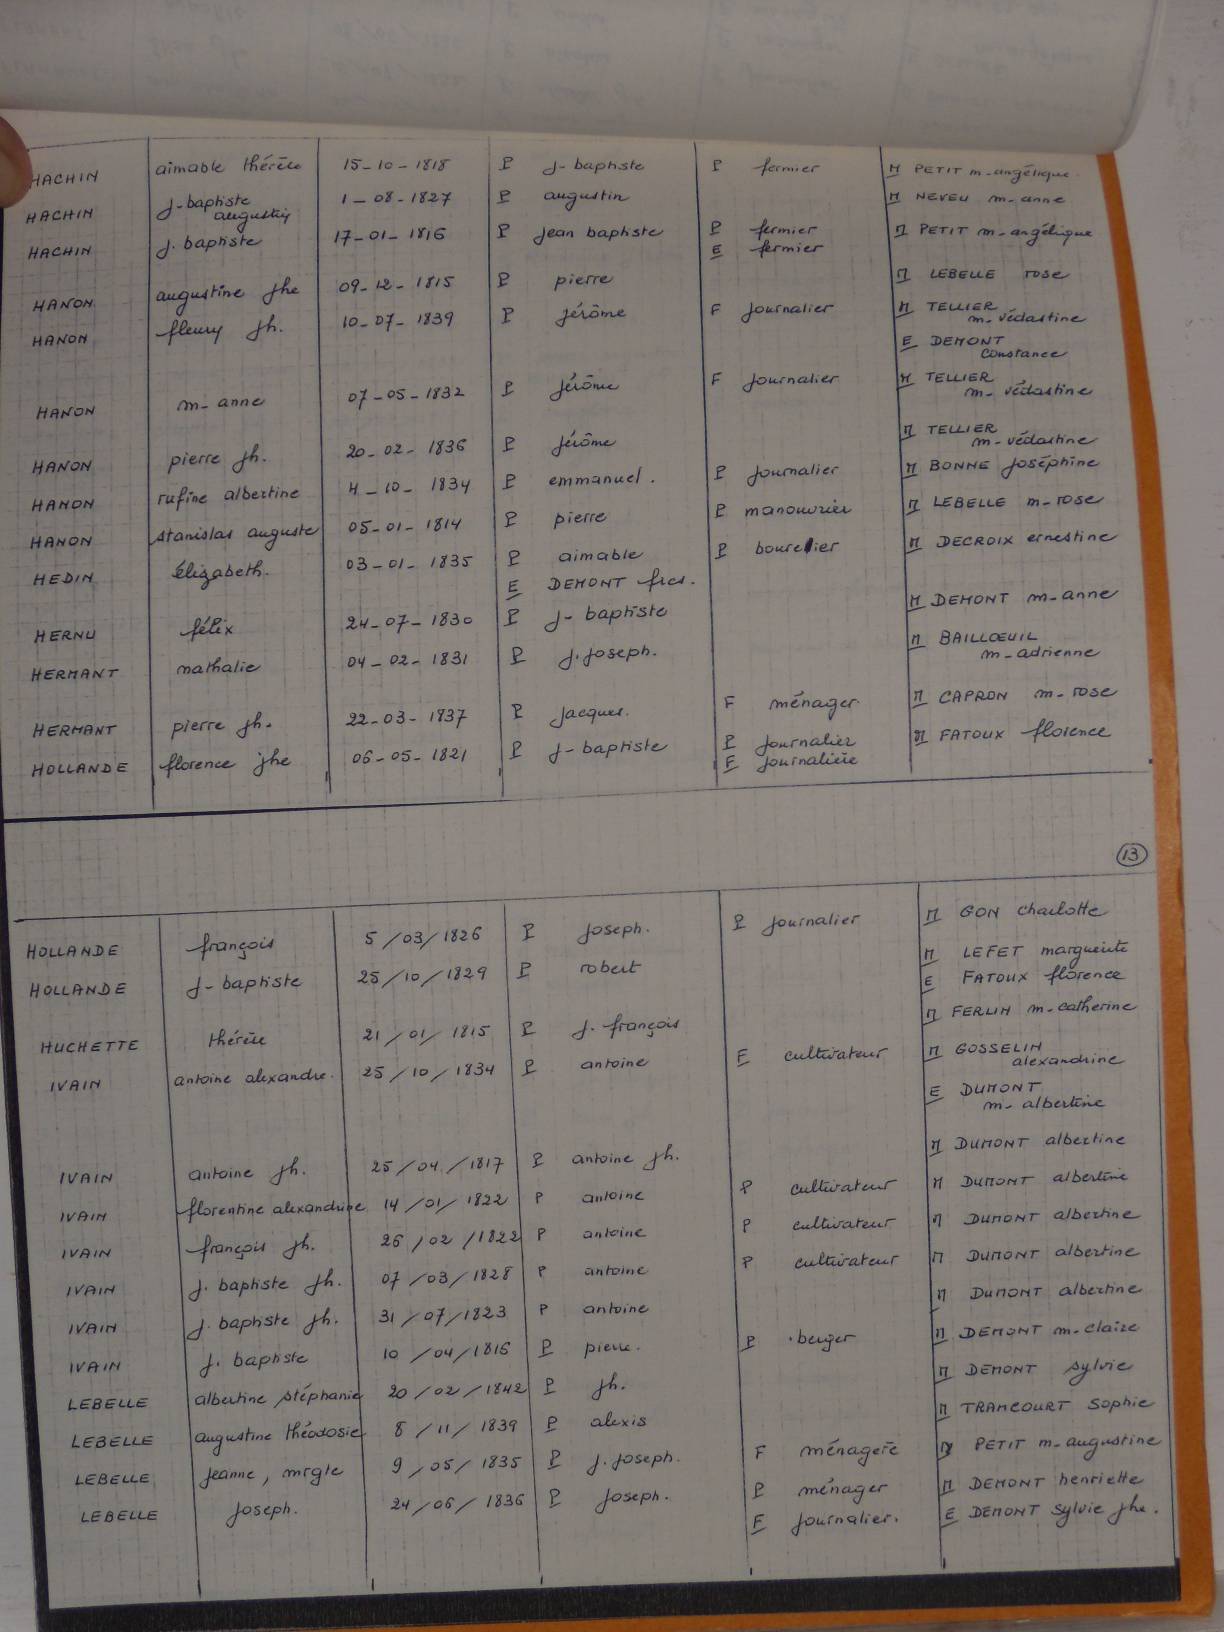 HACHIN aimable thérèse 15-10-1818 P j-baptiste P fermier M PETIT m-angélique.
HACHIN j-baptiste augustin 1-08-1827 P augustin M NEVEU m-anne
HACHIN j. baptiste 17-01-1816 P jean baptiste P fermier M PETIT m-angélique
E fermier
HANON augustine jhe 09-12-1815 P pierre M LEBELLE rose
HANON fleury jh. 10-07-1839 P jérôme F journalier M TELLIER m-védastine
E DEMONT constance
HANON m-anne 07-05-1832 P jérôme F journalier M TELLIER m-védastine
HANON pierre jh. 20-02-1836 P jérôme M TELLIER m-védastine
HANON rufine albertine 4-10-1834 P emmanuel. P journalier M BONNE joséphine
HANON stanislas auguste 05-01-1814 P pierre P manouvrier M LEBELLE m-rose
HEDIN élizabeth. 03-01-1835 P aimable P bourelier M DECROIX ernestine
E DEMONT frcs.
HERNU félix 24-07-1830 P j-baptiste M DEMONT m-anne
HERMANT nathalie 04-02-1831 P j. joseph. M BAILLŒUIL m-adrienne
HERMANT pierre jh. 22-03-1837 P jacques. F ménager M CAPRON m-rose
HOLLANDE florence jhe 06-05-1821 P j-baptiste P journalier M FATOUX florence
E journalière
13
HOLLANDE françois 5/03/1826 P joseph. P journalier M GON charlotte
HOLLANDE j-baptiste 25/10/1829 P robert M LEFET marguerite
E FATOUX florence
HUCHETTE thérèse 21/01/1815 P j. françois M FERLIN m-catherine
IVAIN antoine alexandre. 25/10/1834 P antoine E cultivateur M GOSSELIN alexandrine
E DUMONT m-albertine
IVAIN antoine jh. 25/04/1817 P antoine jh. M DUMONT albertine
IVAIN florentine alexandrine 14/01/1822 P antoine P cultivateur M DUMONT albertine
IVAIN françois jh. 26/02/1822 P antoine P cultivateur M DUMONT albertine
IVAIN j. baptiste jh. 07/03/1828 P antoine P cultivateur M DUMONT albertine
IVAIN j. baptiste jh. 31/07/1823 P antoine M DUMONT albertine
IVAIN j. baptiste 10/04/1816 P pierre. P berger M DEMONT m-claire
LEBELLE albertine stéphanie 20/02/1842 P jh. M DEMONT sylvie
LEBELLE augustine théodosie 8/11/1839 P alexis M TRAMCOURT sophie
LEBELLE jeanne, mrgte 9/05/1835 P j. joseph. F ménagère M PETIT m-augustine
LEBELLE joseph. 24/06/1836 P joseph. P ménager M DEMONT henriette
E journalier. E DEMONT sylvie jhe.